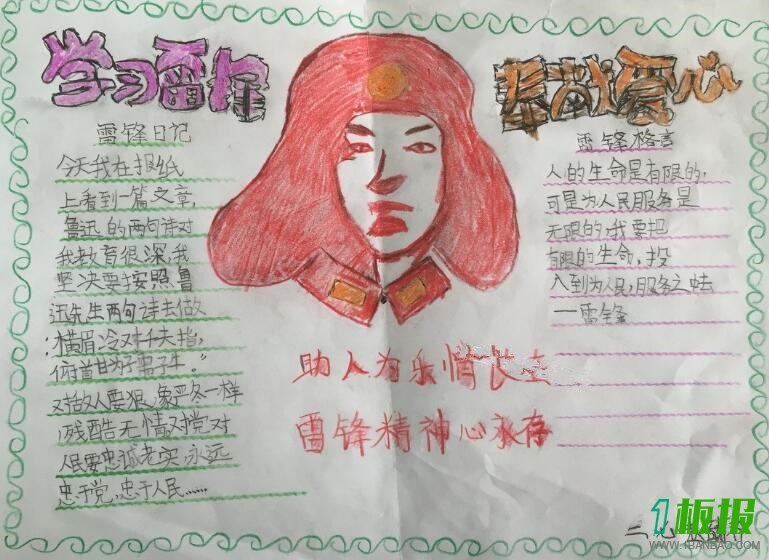 学习雷锋
奉献爱心
雷锋日记
今天我在报纸
上看到一篇文章,
鲁迅的两句诗对
我教育很深,我
坚决要按照鲁
迅先生两句诗去做
“横眉冷对千夫指,
俯首甘为孺子牛。”
对敌人要狠,象严冬一样
残酷无情对党对
人民要忠诚老实,永远
忠于党,忠于人民……
雷锋格言
人的生命是有限的,
可是为人民服务是
无限的,我要把
有限的生命,投
入到为人民服务之中去
一雷锋
助人为乐情长在
雷锋精神心永存
二
1板报
WWW.1BANBAO.COM